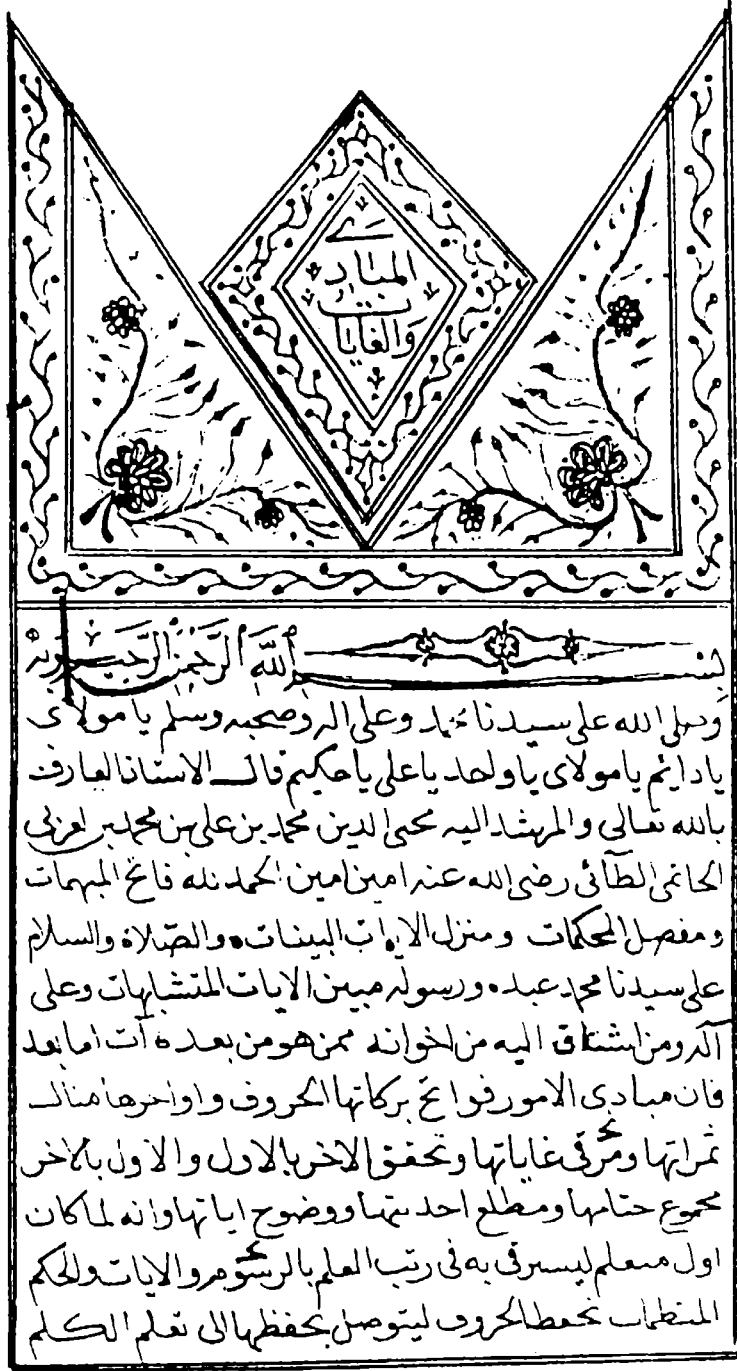 المبادي
والغايات
بسم الله الرحمن الرحيم وبه
وصلى الله على سيدنا محمد وعلى اله وصحبه وسلم يا مولاى
يا دايم يا مولاى يا واحد يا على يا حكيم قال الاستاذ العارف
بالله تعالى والمرشد اليه محيى الدين محمد بن على بن محمد بن العربى
الحاتمى الطآئى رضى الله عنه امين امين الحمد لله فاتح المبهمات
ومفصل المحكمات ومنزل الايات البينات والصلاة والسلام
على سيدنا محمد عبده ورسوله مبين الايات المتشابهات وعلى
آله ومن اشتاق اليه من اخوانه ممن هو من بعده آت اما بعد
فان مبادى الامور فواتح بركاتها الحروف واواخرها منال
ثمراتها وترقى غاياتها وتحقق الاخر بالاول والاول بالاخر
مجموع ختامها ومطلع احديتها ووضوح اياتها وانه لما كان
اول متعلم ليسترقى به فى رتب العلم بالرسوم والايات والحكم
المنتظمات تحفظ الحروف ليتوصل بحفظها الى تعلم الكلم